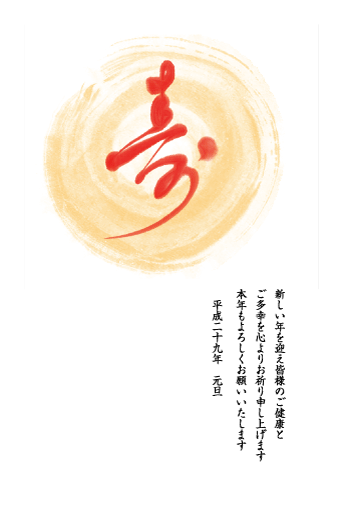 寿
新しい年を迎え皆様のご健康と
ご多幸を心よりお祈り申し上げます
本年もよろしくお願いいたします
平成二十九年　元旦